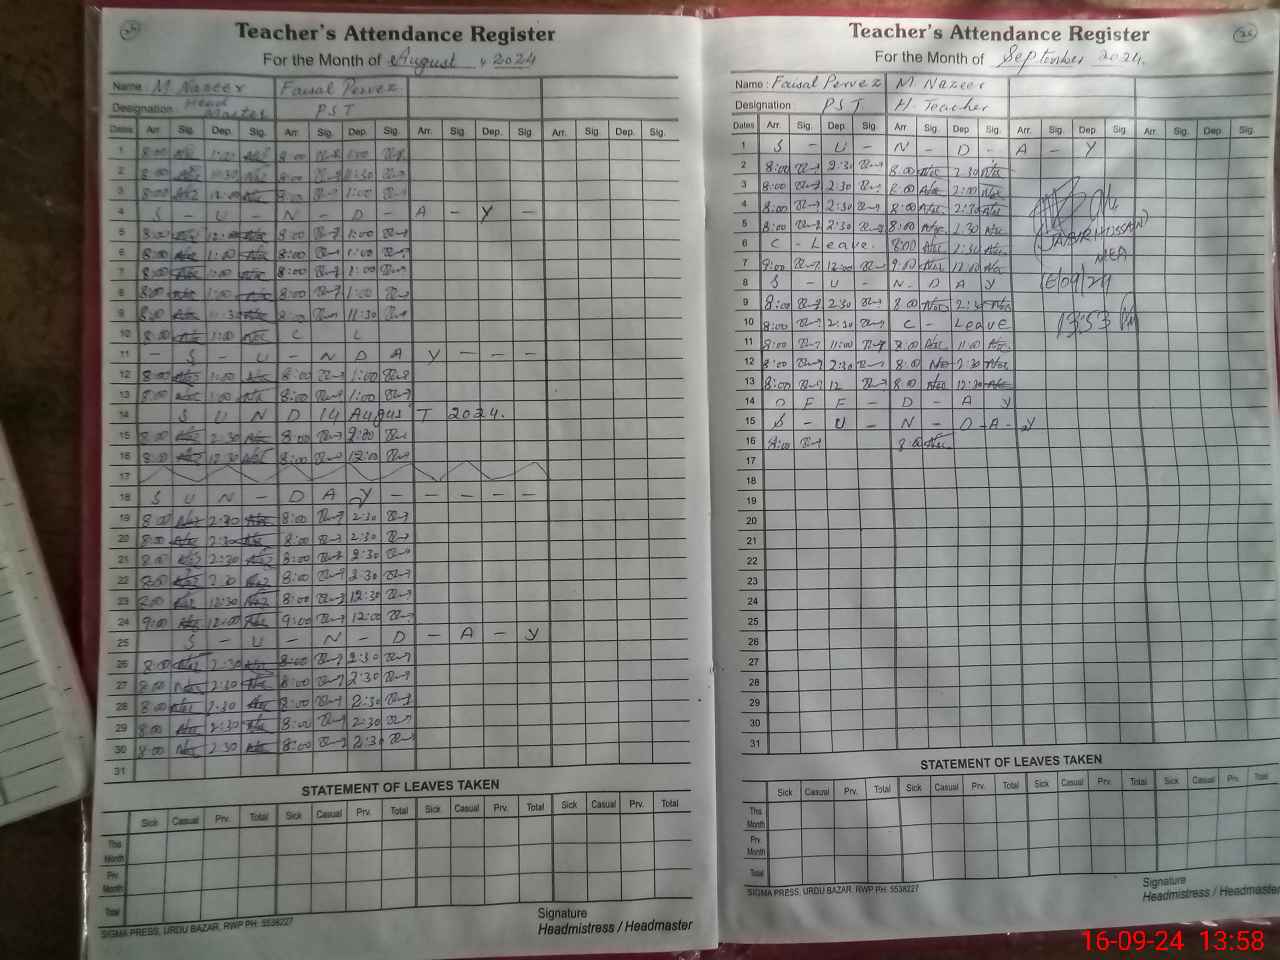 26
Teacher's Attendance Register
For the Month of August, 2024
Name : M Nazeer Faisal Pervez
Designation : Head Master PST
Dates Arr. Sig. Dep. Sig. Arr. Sig. Dep. Sig. Arr. Sig. Dep. Sig. Arr. Sig. Dep. Sig.
1 8:00 8:00 1:00
2 8:00 11:30 8:00 11:30
3 8:00 8:00 1:00
4 S - U - N - D - A - Y -
5 8:00 8:00 1:00
6 8:00 1:00 8:00 1:00
7 8:00 1:00 8:00 1:00
8 8:00 1:00 8:00 1:00
9 8:00 11:30 8:00 11:30
10 8:00 1:00 C L
11 - S - U - N D A Y - - -
12 8:00 1:00 8:00 1:00
13 8:00 1:00 8:00 1:00
14 S U N D 14 August 2024.
15 8:00 2:30 8:00
16 8:00 12:30 8:00 12:00
17
18 S U N - D A Y - - - - -
19 8:00 2:30 8:00 2:30
20 8:00 2:30 8:00 2:30
21 8:00 2:30 8:00 2:30
22 8:00 2:30 8:00 2:30
23 8:00 12:30 8:00 12:30
24 9:00 12:00 9:00 12:00
25 S - U - N - D - A - Y
26 8:00 2:30 8:00 2:30
27 8:00 2:30 8:00 2:30
28 8:00 2:30 8:00 2:30
29 8:00 2:30 8:00 2:30
30 8:00 2:30 8:00 2:30
31
STATEMENT OF LEAVES TAKEN
Sick Casual Prv. Total Sick Casual Prv. Total Sick Casual Prv. Total Sick Casual Prv. Total
This Month
Prv. Month
Total
SIGMA PRESS, URDU BAZAR, RWP PH: 5538227
Signature
Headmistress / Headmaster
26
Teacher's Attendance Register
For the Month of September 2024.
Name : Faisal Pervez M. Nazeer
Designation : PST H. Teacher
Dates Arr. Sig. Dep. Sig. Arr. Sig. Dep. Sig. Arr. Sig. Dep. Sig. Arr. Sig. Dep. Sig.
1 S - U - N - D - A - Y
2 8:00 2:30 8:00 2:30
3 8:00 2:30 8:00 2:00
4 8:00 2:30 8:00 2:30
5 8:00 2:30 8:00 2:30
6 C - Leave. 8:00 2:30
7 9:00 12:00 9:00 12:00
8 S - U - N - D A Y
9 8:00 2:30 8:00 2:30
10 8:00 2:30 C - Leave
11 8:00 11:00 8:00 11:00
12 8:00 2:30 8:00 2:30
13 8:00 12 8:00 12:30
14 O F F - D - A Y
15 S - U - N - D - A - Y
16 8:00 8:00
17
18
19
20
21
22
23
24
25
26
27
28
29
30
31
(JABIR HUSSAIN)
MEA
16/09/24
13:53
STATEMENT OF LEAVES TAKEN
Sick Casual Prv. Total Sick Casual Prv. Total Sick Casual Prv. Total Sick Casual Prv. Total
This Month
Prv. Month
Total
SIGMA PRESS, URDU BAZAR, RWP PH: 5538227
Signature
Headmistress / Headmaster
16-09-24 13:58